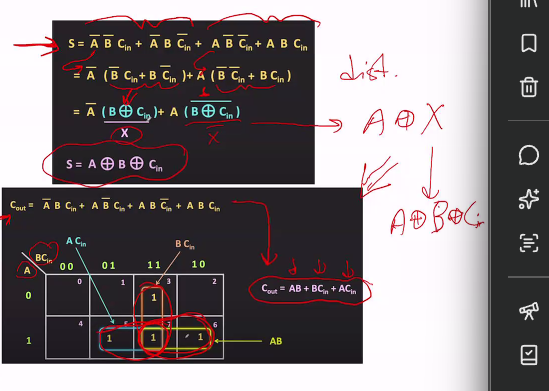 S = A̅ B̅ Cin + A̅ B C̅in + A B̅ C̅in + A B Cin
= A̅ ( B̅ Cin + B C̅in ) + A ( B̅ C̅in + B Cin )
= A̅ ( B ⊕ Cin ) + A ( B ⊕ Cin )̅
X
X̅
S = A ⊕ B ⊕ Cin
dist.
A ⊕ X
A⊕B⊕Cin
Cout = A̅ B Cin + A B̅ Cin + A B C̅in + A B Cin
A Cin
B Cin
BCin
A
00 01 11 10
0
0 1 3 2
1
1
4 6
1 1 1
AB
Cout = AB + BCin + ACin